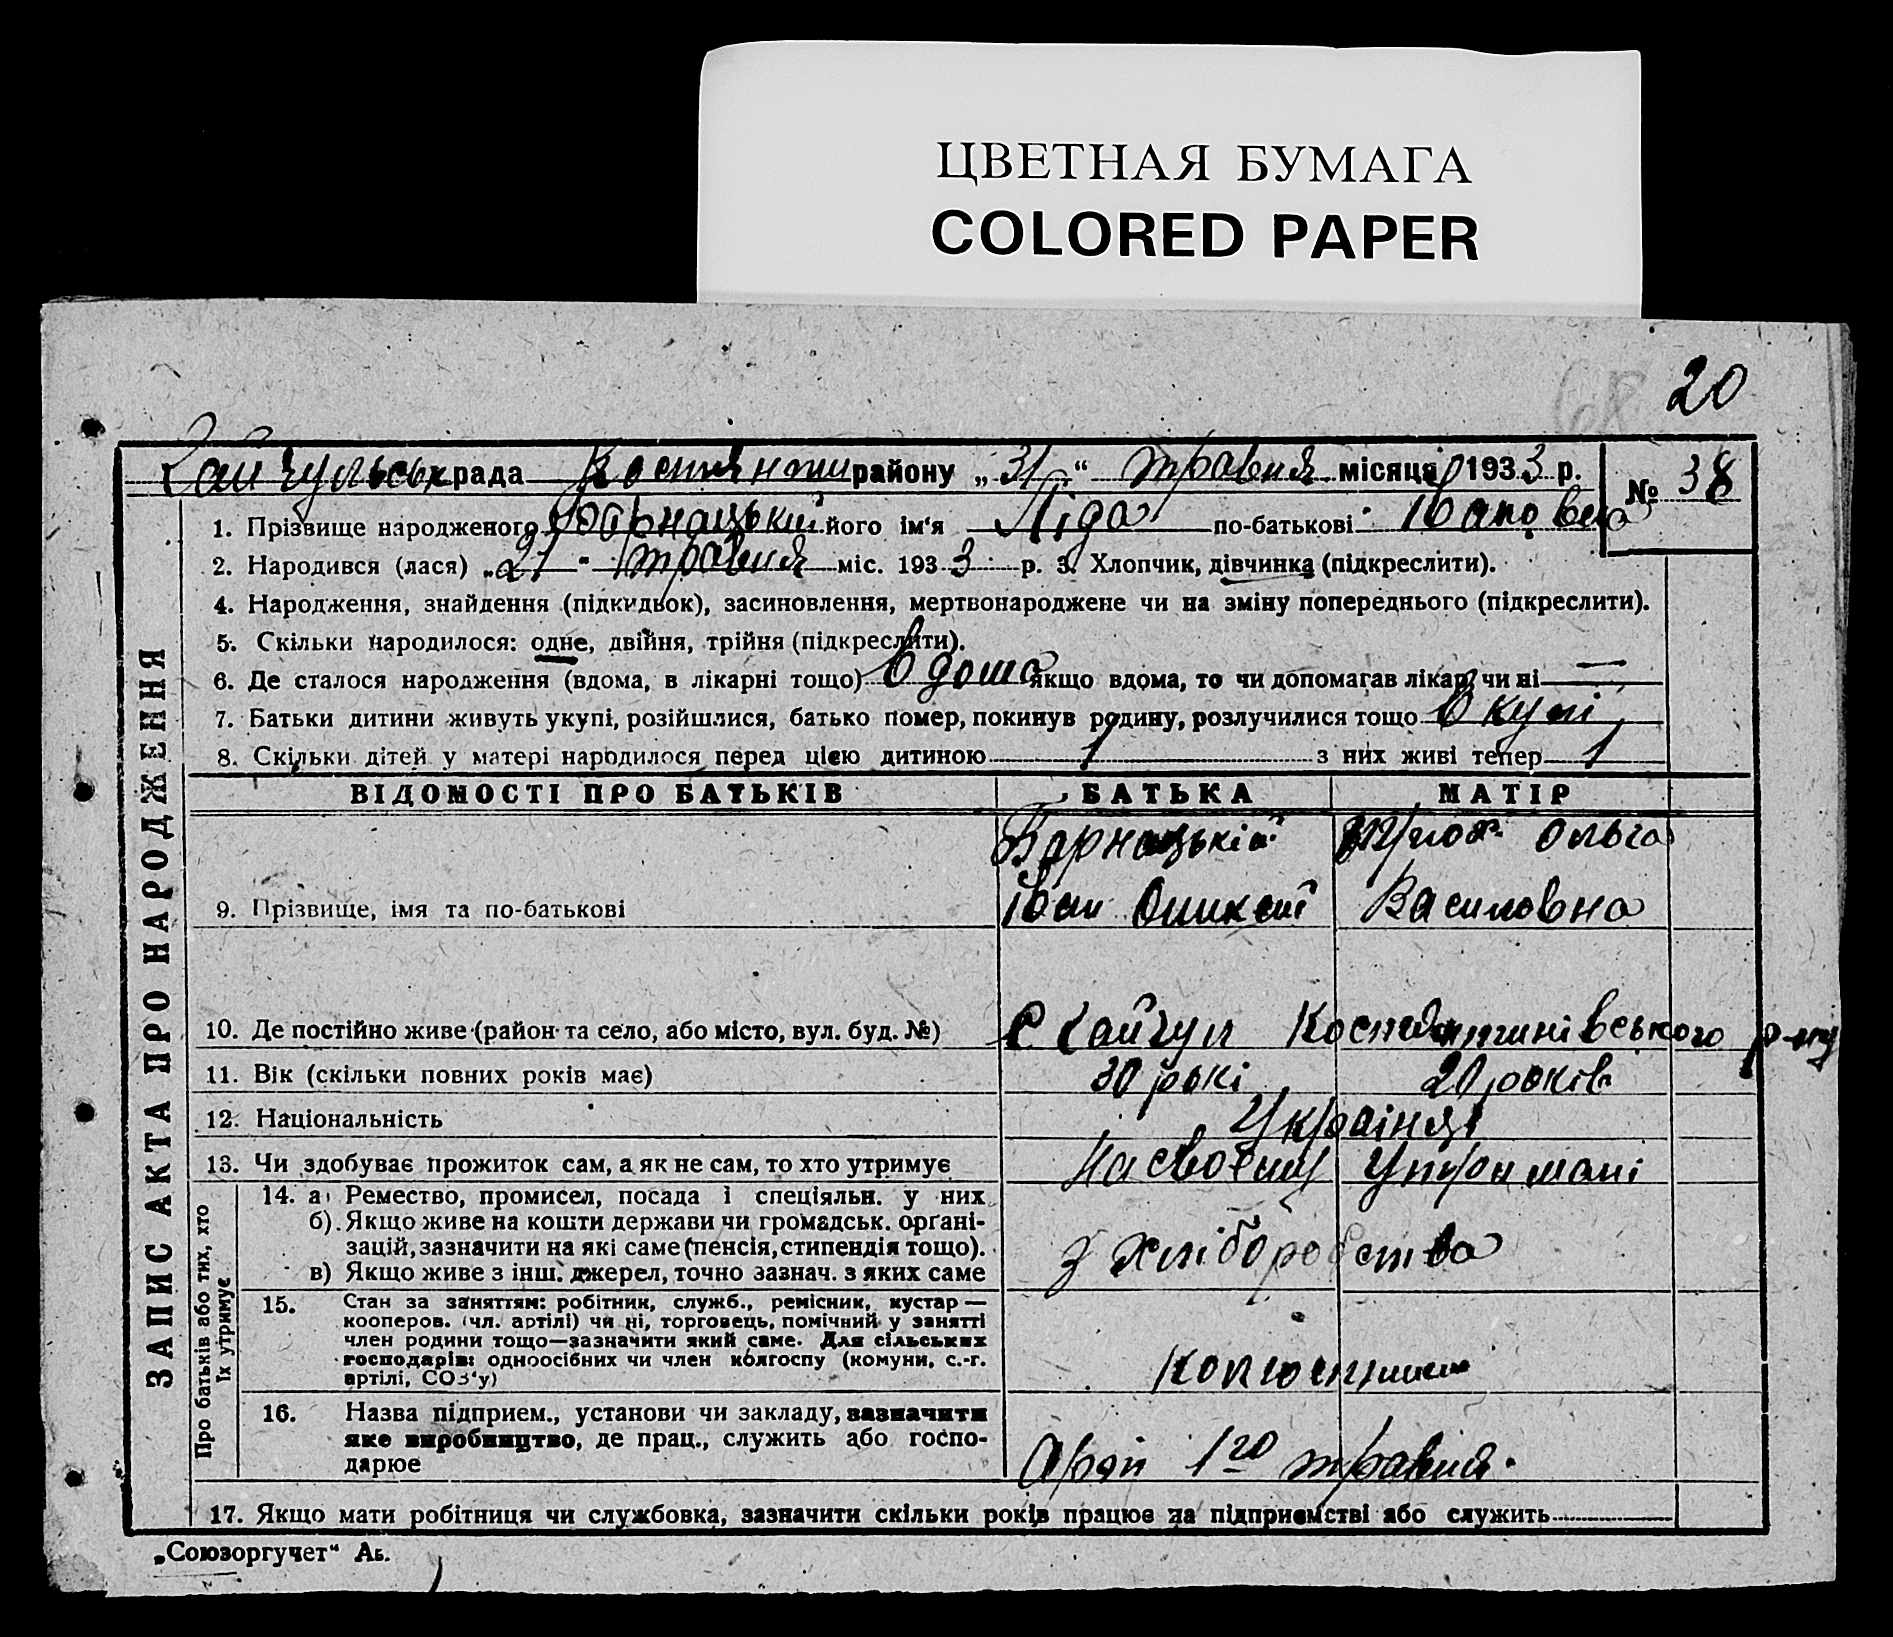 ЦВЕТНАЯ БУМАГА
COLORED PAPER
20
68
рада районy „31“ травня місяця 1933 р.
№ 38
1. Прізвище народженого Барнацький його ім‘я Ліда по-батькові
2. Народився (лася) „21“ травня міс. 1933 р. 3. Хлопчик, дівчинка (підкреслити).
4. Народження, знайдення (підкидьок), засиновлення, мертвонароджене чи на зміну попереднього (підкреслити).
5. Скільки народилося: одне, двійня, трійня (підкреслити).
6. Де сталося народження (вдома, в лікарні тощо) вдома якщо вдома, то чи допомагав лікар чи ні —
7. Батьки дитини живуть укупі, розійшлися, батько помер, покинув родину, розлучилися тощо вкупі
8. Скільки дітей у матері народилося перед цією дитиною 1 з них живі тепер 1
ВІДОМОСТІ ПРО БАТЬКІВ БАТЬКА МАТІР
Барнацькій Ольга
9. Прізвище, імя та по-батькові Іван Василовна
10. Де постійно живе (район та село, або місто, вул. буд. №) с Кайгул Костянтинівського р-ну
11. Вік (скільки повних років має) 30 рокі 20 років
12. Національність Українці
13. Чи здобуває прожиток сам, а як не сам, то хто утримує На своєму утримані
14. а) Ремество, промисел, посада і спеціяльн. у них
б) Якщо живе на кошти держави чи громадськ. орґані-
зацій, зазначити на які саме (пенсія, стипендія тощо).
в) Якщо живе з інш. джерел, точно зазнач. з яких саме
З хліборобства
15. Стан за заняттям: робітник, служб., ремісник, кустар —
кооперов. (чл. артілі) чи ні, торговець, помічний у занятті
член родини тощо—зазначити який саме. Для сільських
господарів: одноосібних чи член колгоспу (комуни, с.-г.
артілі, СОЗ‘у)
16. Назва підприєм., установи чи закладу, зазначити
яке виробництво, де прац., служить або госпо-
дарює
Артіл 1го травня.
17. Якщо мати робітниця чи службовка, зазначити скільки років працює на підприємстві або служить
„Союзоргучет“ Аь.
ЗАПИС АКТА ПРО НАРОДЖЕННЯ
Про батьків або тих, хто
їх утримує